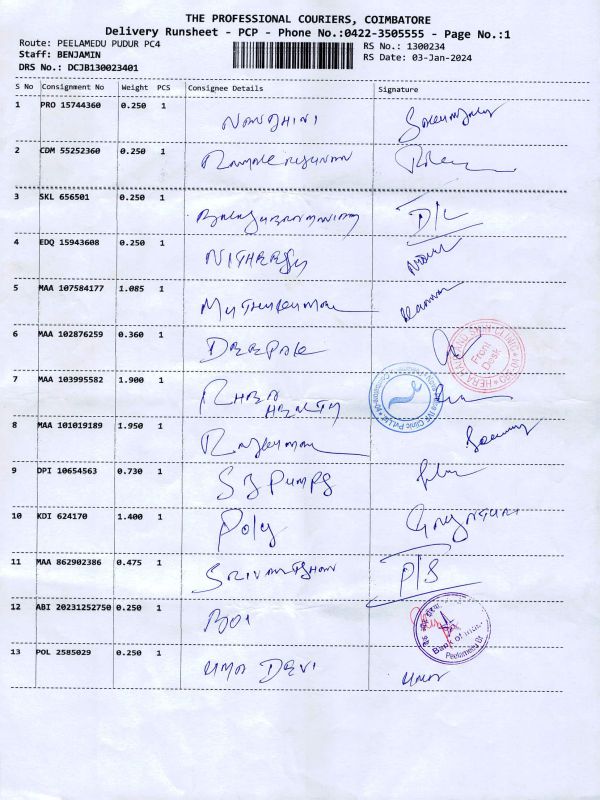 THE PROFESSIONAL COURIERS, COIMBATORE
Delivery Runsheet - PCP - Phone No.:0422-3505555 - Page No.:1
Route: PEELAMEDU PUDUR PC4
RS No.: 1300234
Staff: BENJAMIN
RS Date: 03-Jan-2024
DRS No.: DCJB130023401
S No Consignment No Weight PCS Consignee Details Signature
1 PRO 15744360 0.250 1 NANDHINI
2 CDM 55252360 0.250 1 Ramakrishnan
3 SKL 656501 0.250 1 Balasubramaniam D/L
4 EDQ 15943608 0.250 1
5 MAA 107584177 1.085 1 Muthukumar Kannan
6 MAA 102876259 0.360 1 DEEPAK
Front Desk
7 MAA 103995582 1.900 1 RHEA HEALTH
IVF Clinic Pvt.Ltd
8 MAA 101019189 1.950 1 Rajkumar
9 DPI 10654563 0.730 1 SJ PUMPS
10 KDI 624170 1.400 1 Poly
11 MAA 862902386 0.475 1 P/S
12 ABI 20231252750 0.250 1 BOI
Bank of India
Peelamedu Br
13 POL 2585029 0.250 1 UMA DEVI uma